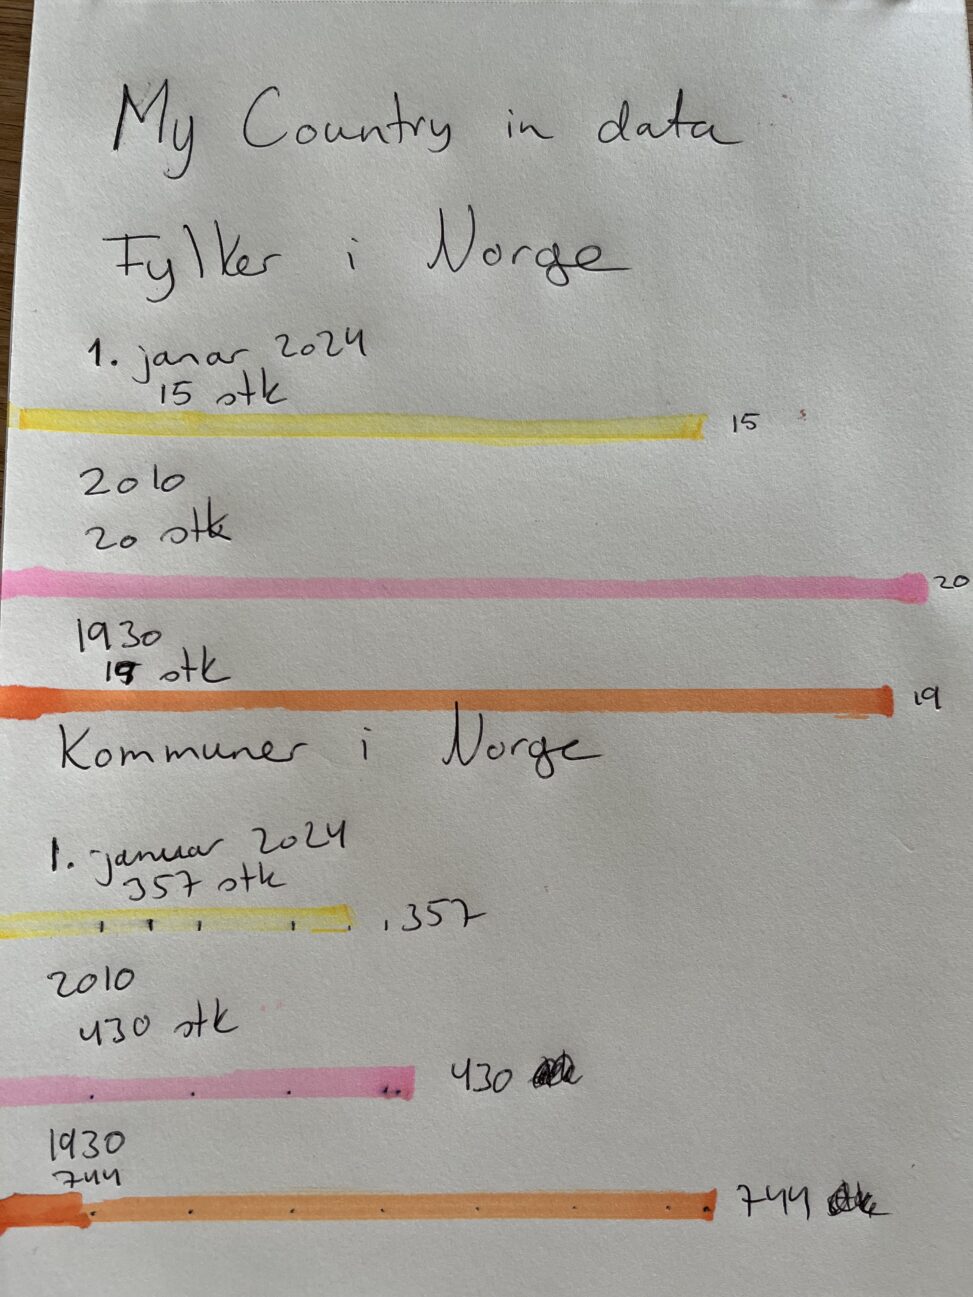 My Country in data
Fylker i Norge
1. janar 2024
15 stk
15
2010
20 stk
20
1930
19 stk
19
Kommuner i Norge
1. januar 2024
357 stk
357
2010
430 stk
430
1930
744
744